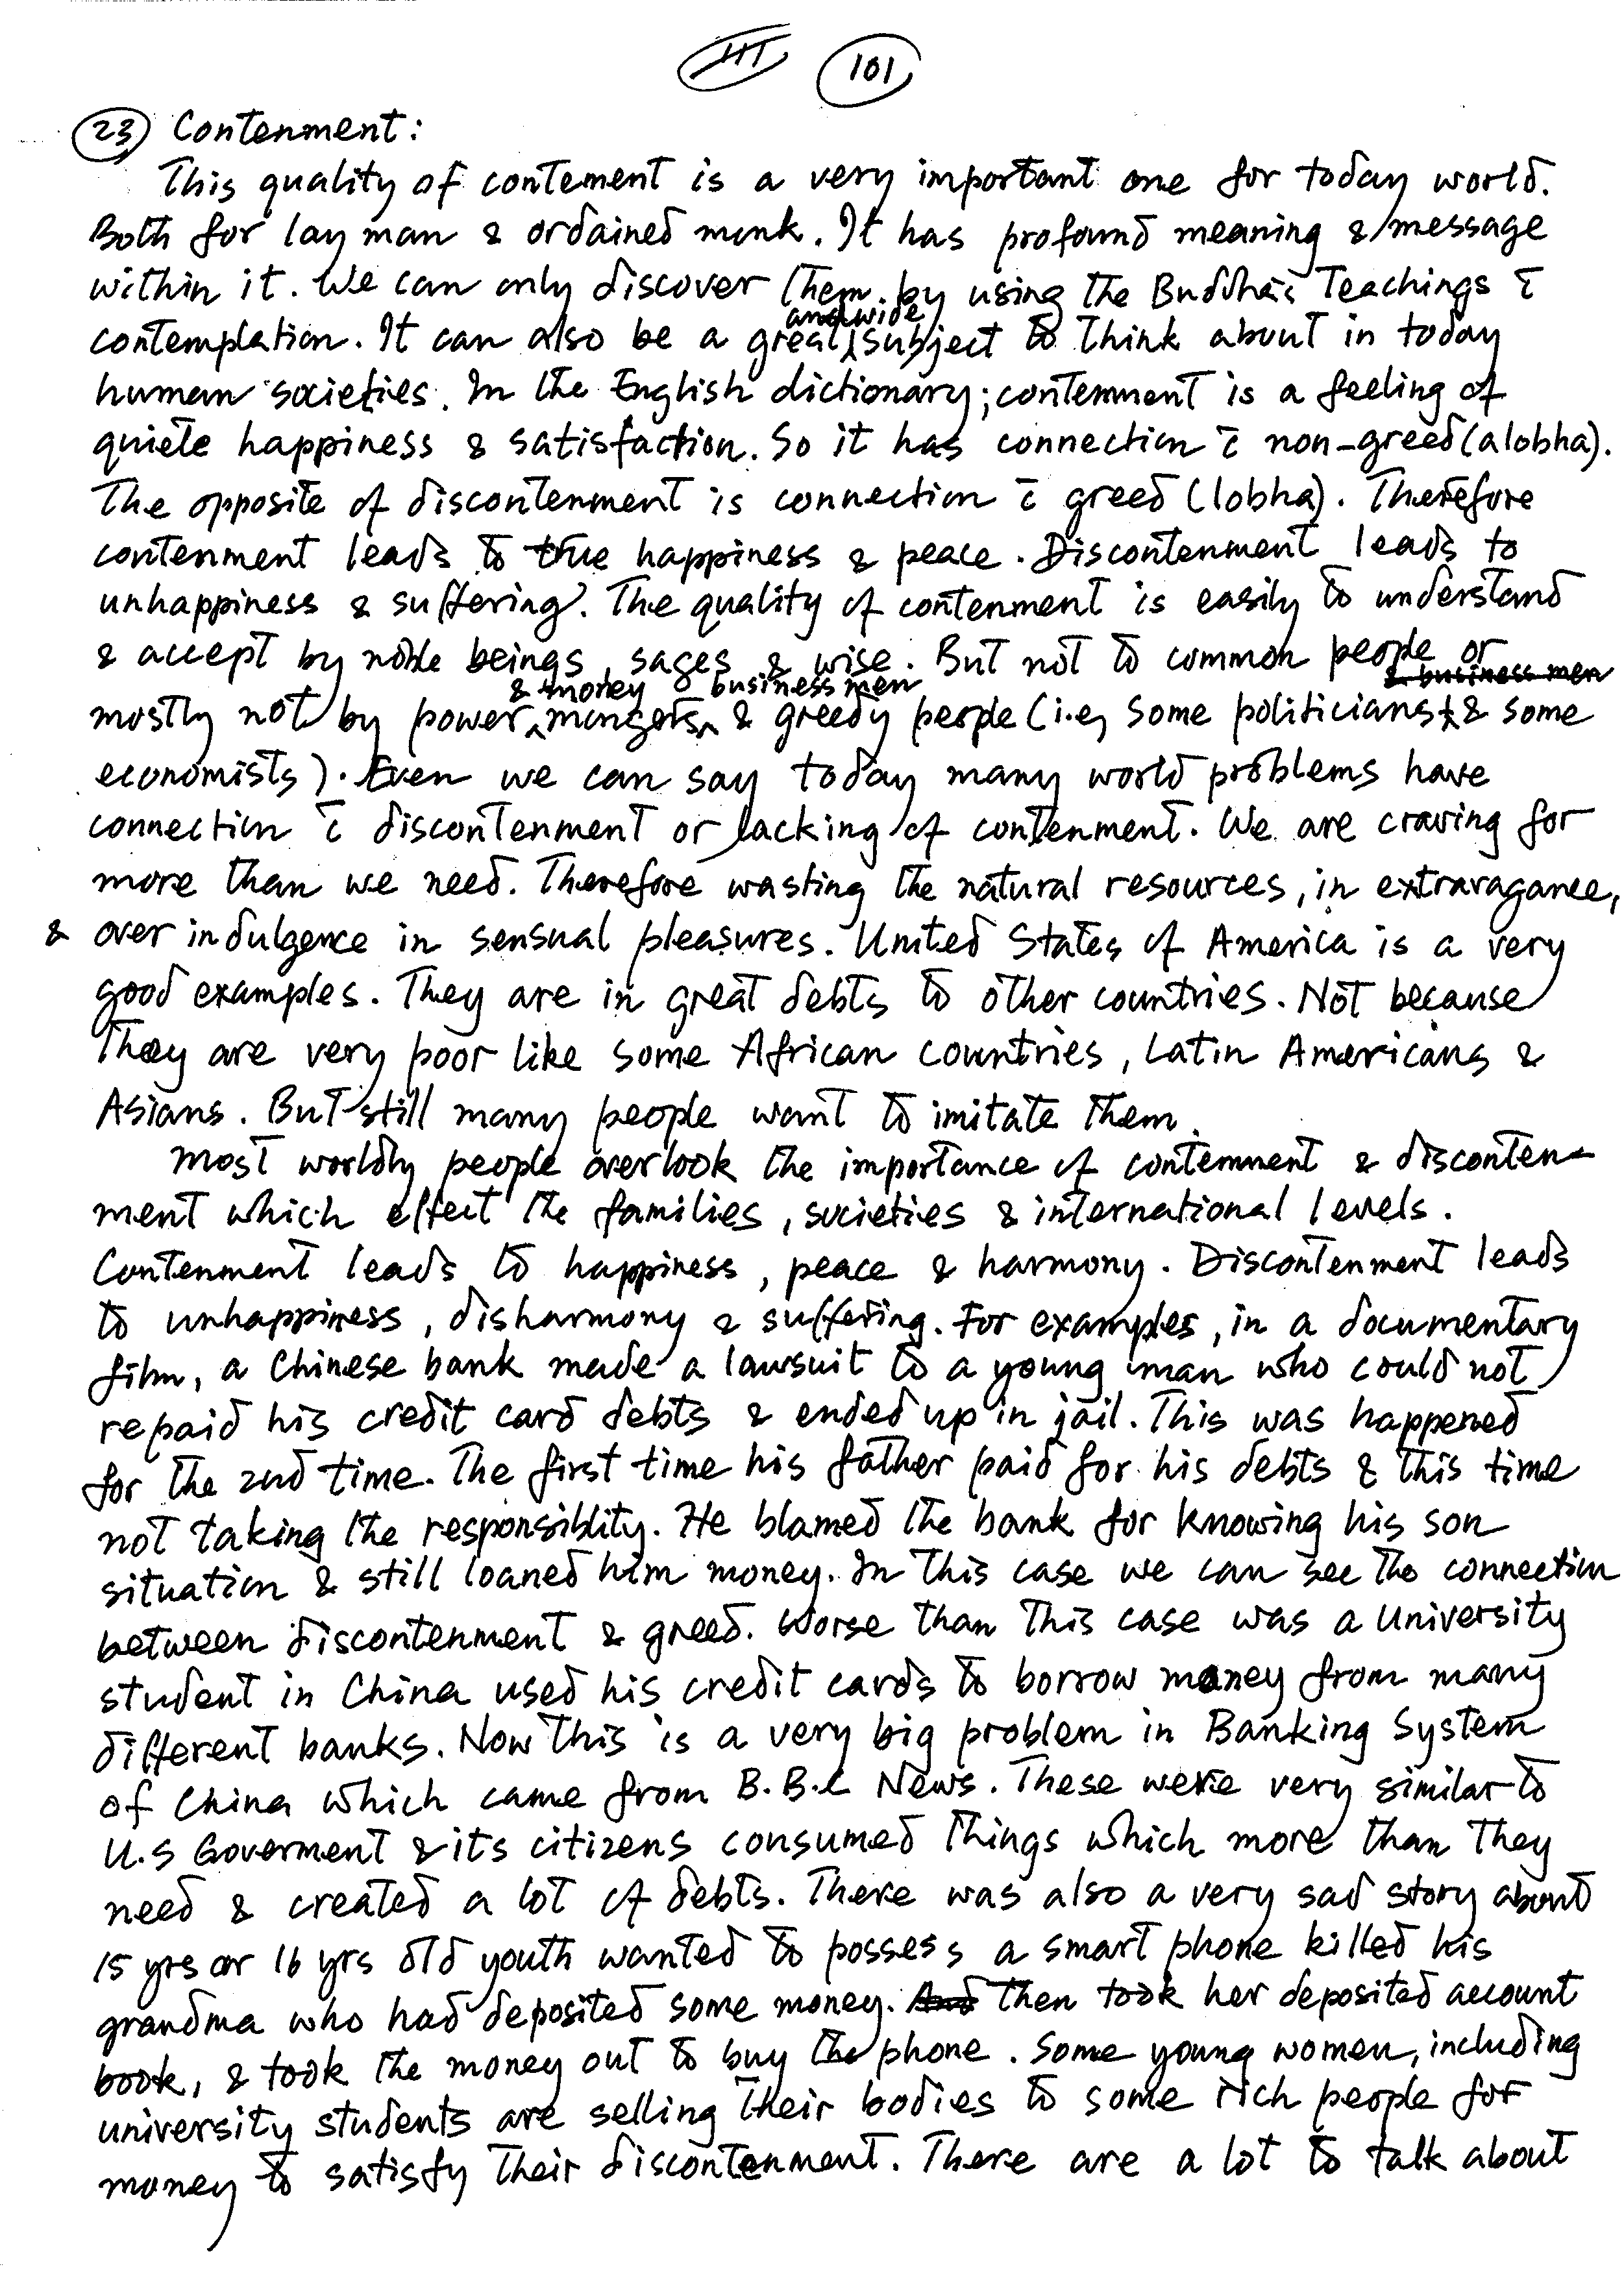 III 101
23) Contenment:
This quality of contement is a very important one for today world.
Both for lay man & ordained monk. It has profound meaning & message
within it. We can only discover them by using the Buddha's Teachings c̄
contemplation. It can also be a great and wide subject to think about in today
human societies. In the English dictionary; contenment is a feeling of
quiete happiness & satisfaction. So it has connection c̄ non-greed (alobha).
The opposite of discontenment is connection c̄ greed (lobha). Therefore
contenment leads to true happiness & peace. Discontenment leads to
unhappiness & suffering. The quality of contenment is easily to understand
& accept by noble beings, sages & wise. But not to common people or
mostly not by power & money mongers, business men & greedy people (i.e, some politicians & some
economists). Even we can say today many world problems have
connection c̄ discontenment or lacking of contenment. We are craving for
more than we need. Therefore wasting the natural resources, in extravagance,
& over indulgence in sensual pleasures. United States of America is a very
good examples. They are in great debts to other countries. Not because
they are very poor like some African countries, Latin Americans &
Asians. But still many people want to imitate them.
Most worldly people overlook the importance of contenment & disconten-
ment which effect the families, societies & international levels.
Contenment leads to happiness, peace & harmony. Discontenment leads
to unhappiness, disharmony & suffering. For examples, in a documentary
film, a Chinese bank made a lawsuit to a young man who could not
repaid his credit card debts & ended up in jail. This was happened
for the 2nd time. The first time his father paid for his debts & this time
not taking the responsiblity. He blamed the bank for knowing his son
situation & still loaned him money. In this case we can see the connection
between discontenment & greed. Worse than this case was a University
student in China used his credit cards to borrow money from many
different banks. Now this is a very big problem in Banking System
of China which came from B.B.C News. These were very similar to
U.S Goverment & its citizens consumed things which more than they
need & created a lot of debts. There was also a very sad story about
15 yrs or 16 yrs old youth wanted to possess a smart phone killed his
grandma who had deposited some money. then took her deposited account
book, & took the money out to buy the phone. Some young women, including
university students are selling their bodies to some rich people for
money to satisfy their discontenment. There are a lot to talk about